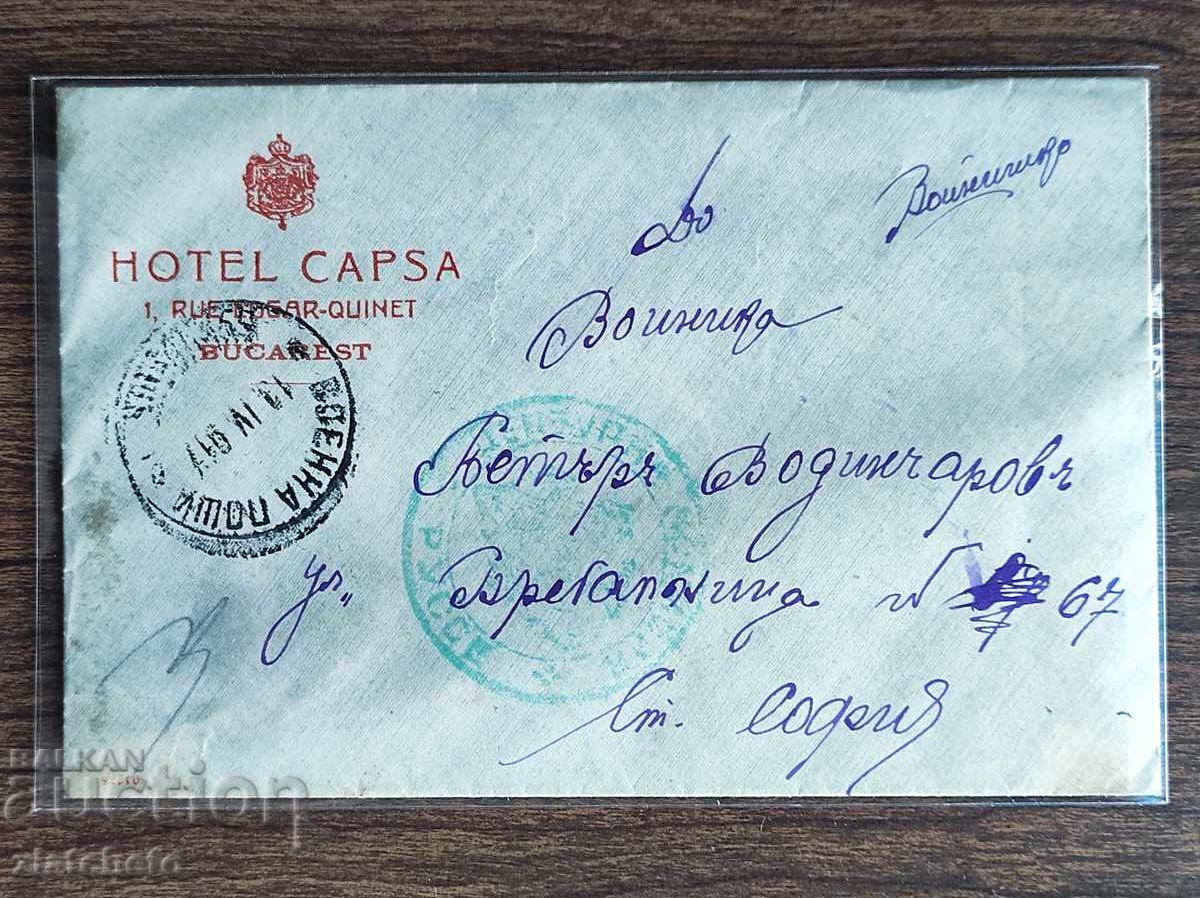 HOTEL CAPSA
1, RUE EDGAR-QUINET
BUCAREST
До
Войнишко
Войника
Петъръ Водинчаровъ
ул. Брегалница № 67
Ст. София
ВОЕННА ПОЩА
17 IV 917
РУССЕ
BALKAN
auction
zlatcheto